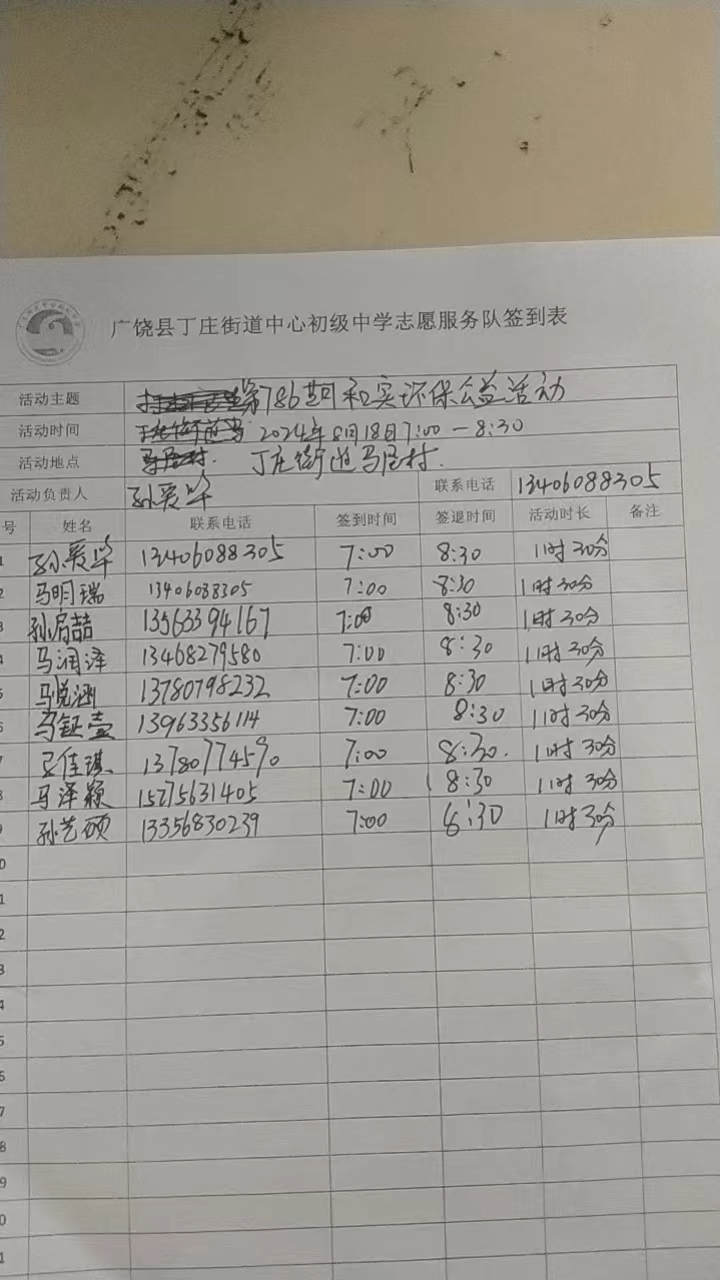 广饶县丁庄街道中心初级中学志愿服务队签到表
活动主题 第786期和实环保公益活动
活动时间 2024年8月18日7:00－8:30
活动地点 丁庄街道马居村.
活动负责人 孙爱华 联系电话 13406088305
号 姓名 联系电话 签到时间 签退时间 活动时长 备注
1 孙爱华 13406088305 7:00 8:30 1时30分
2 马明瑞 13406088305 7:00 8:30 1时30分
3 孙启喆 13563394167 7:00 8:30 1时30分
4 马润泽 13468279580 7:00 8:30 1时30分
5 马悦涵 13780798232 7:00 8:30 1时30分
6 马钰壹 13963356114 7:00 8:30 1时30分
7 王佳琪 13780774590 7:00 8:30. 1时30分
8 马泽颖 15275631405 7:00 8:30 1时30分
9 孙艺硕 13356830239 7:00 8:30 1时30分
0
1
2
3
4
5
6
7
8
9
0
1